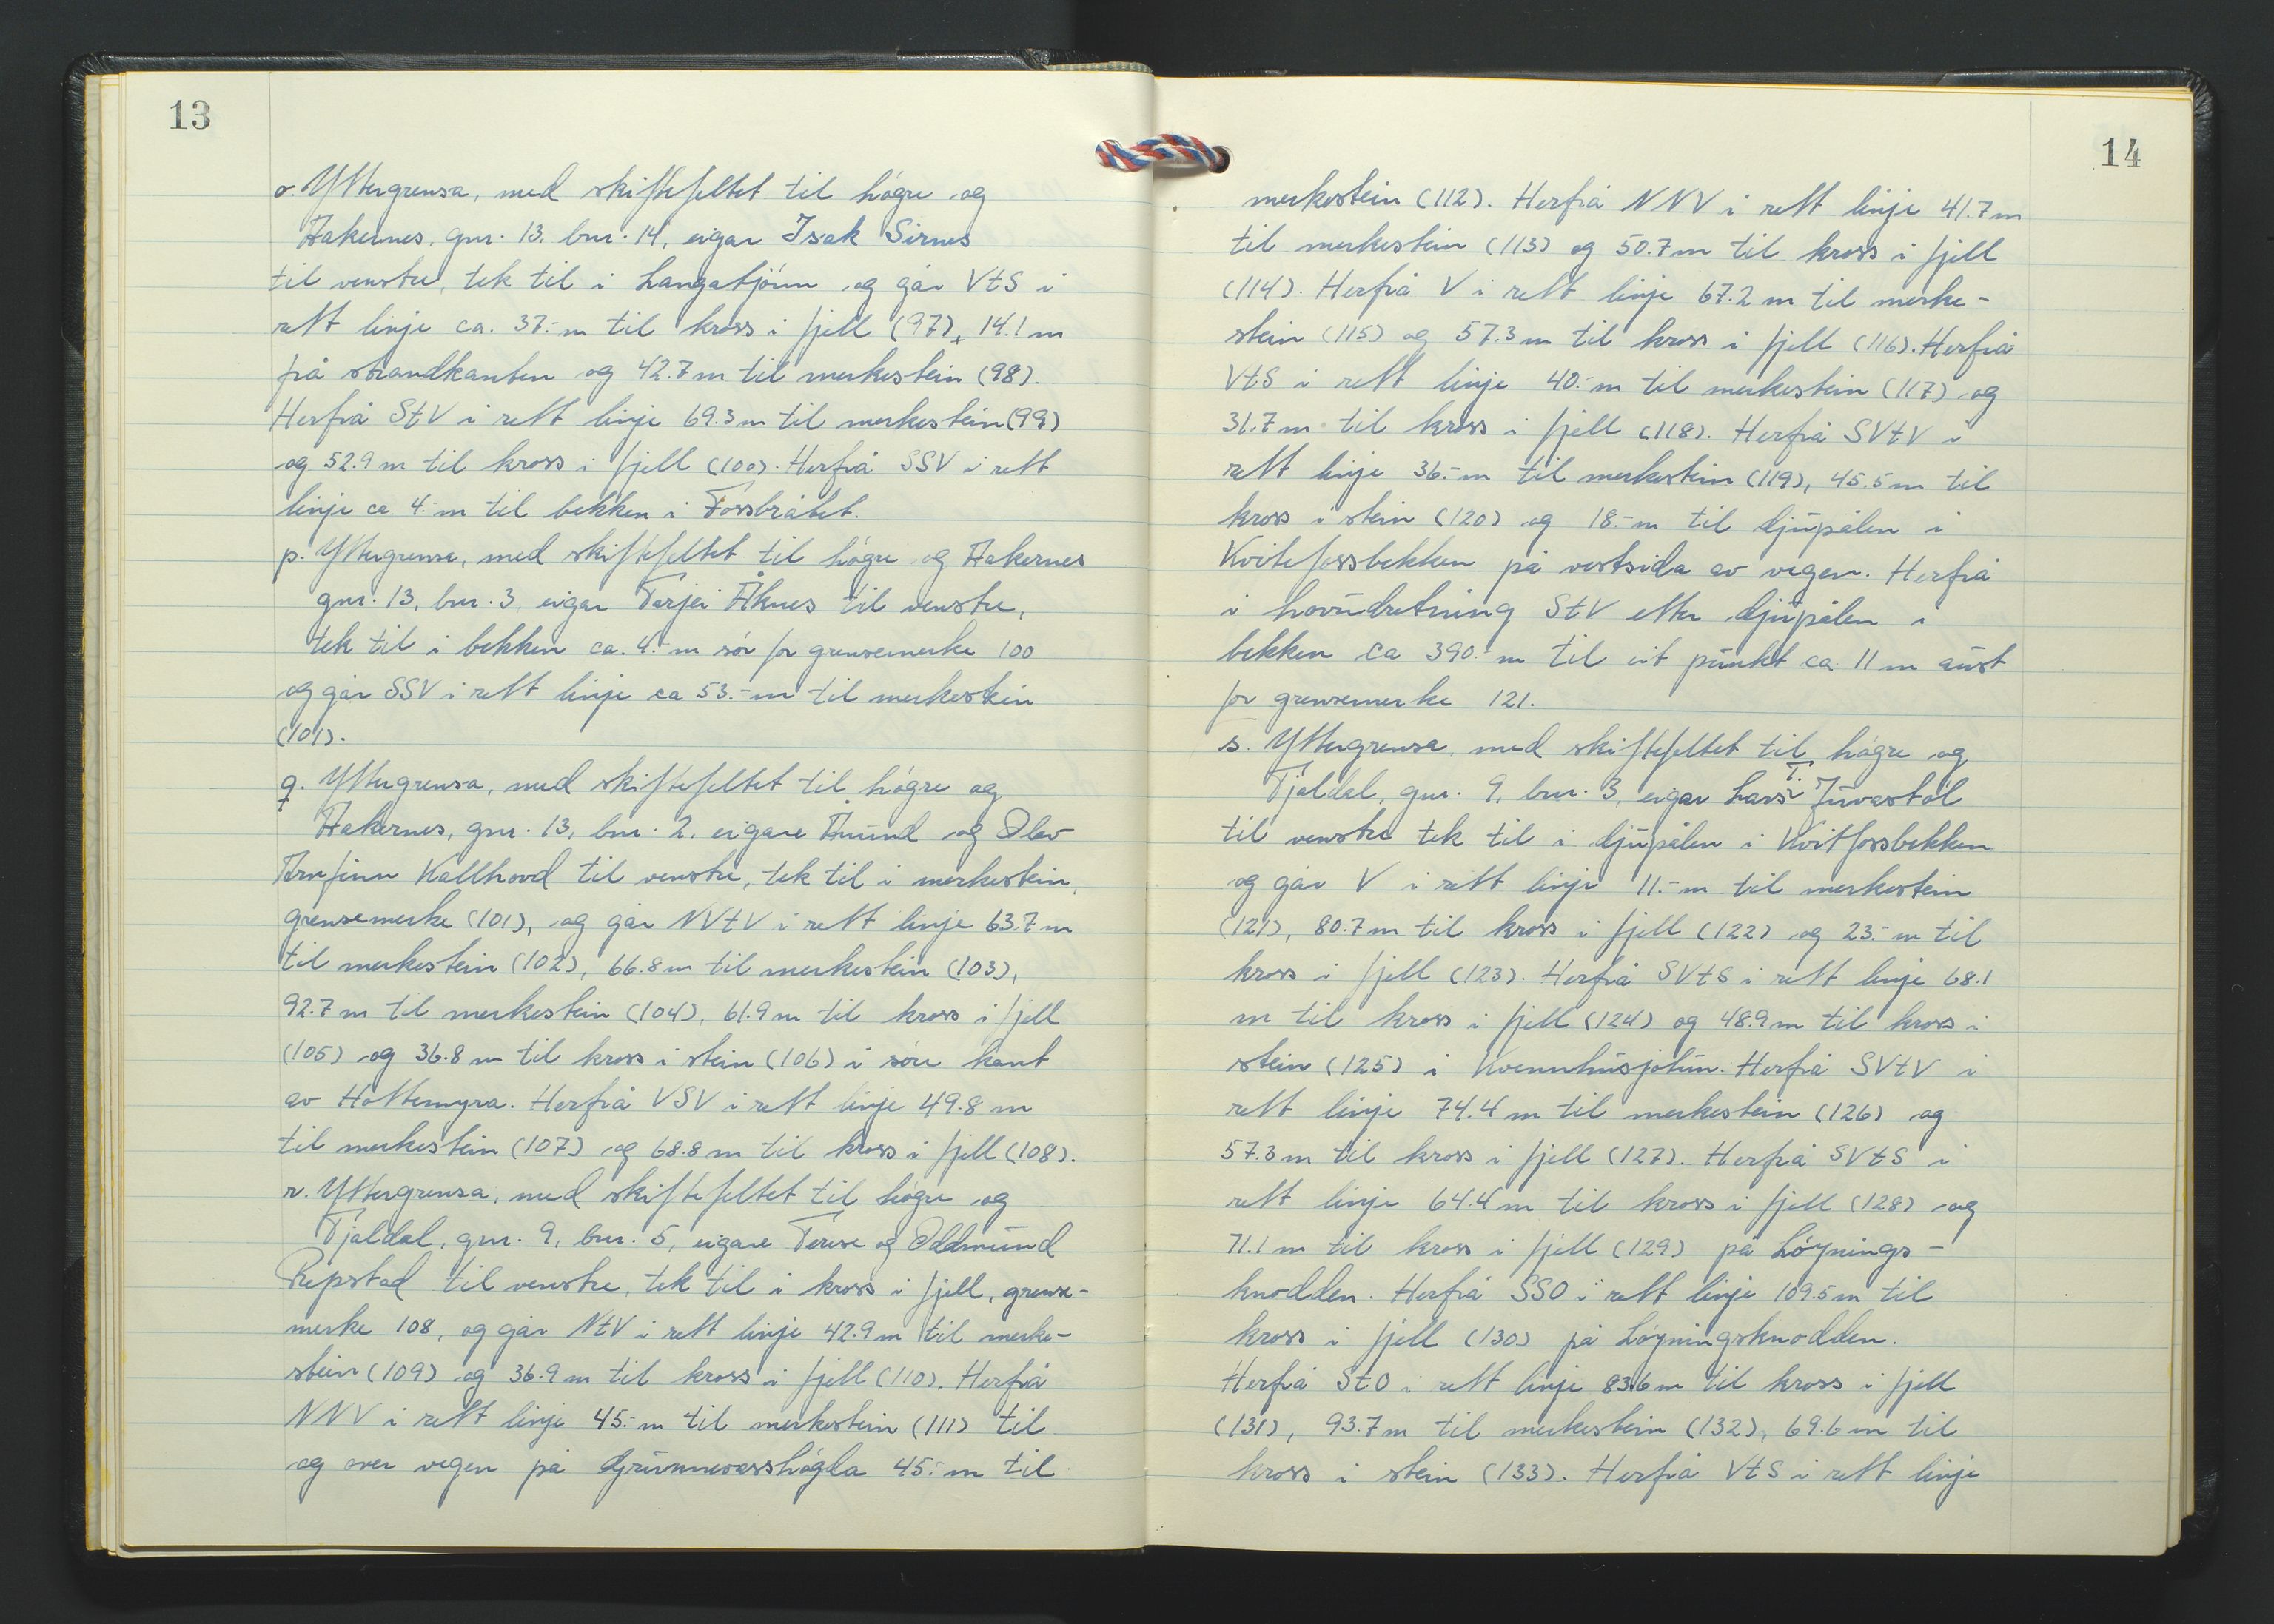 13
o. Yttergrensa, med skiftefeltet til høgre og
Aakernes, gnr. 13, bnr. 14, eigar Isak Sirnes
til venstre, tek til i Langatjønn og går VtS i
rett linje ca. 37.- m til kross i fjell (97), 14.1 m
frå strandkanten og 42.7 m til merkestein (98).
Herfrå StV i rett linje 69.3 m til merkestein (99)
og 52.9 m til kross i fjell (100). Herfrå SSV i rett
linje ca 4.- m til bekken i Fossbråtet.
p. Yttergrensa, med skiftefeltet til høgre og Aakernes
gnr. 13, bnr. 3 eigar Tarjei Åknes til venstre,
tek til i bekken ca. 4.- m sør for grensemerke 100
og går SSV i rett linje ca 53.- m til merkestein
(101).
q. Yttergrensa, med skiftefeltet til høgre og
Aakernes, gnr. 13, bnr. 2. eigare Åmund og Olav
Arnfinn Kallhovd til venstre, tek til i merkestein,
grensemerke (101), og går NVtV i rett linje 63.7 m
til merkestein (102), 66.8 m til merkestein (103),
92.7 m til merkestein (104), 61.9 m til kross i fjell
(105) og 36.8 m til kross i stein (106) i søre kant
av Hottemyra. Herfrå VSV i rett linje 49.8 m
til merkestein (107) og 68.8 m til kross i fjell (108).
r. Yttergrensa, med skiftefeltet til høgre og
Tjaldal, gnr. 9, bnr. 5, eigare Terese og Oddmund
Repstad til venstre, tek til i kross i fjell, grense-
merke 108, og går NtV i rett linje 42.9 m til merke-
stein (109) og 36.9 m til kross i fjell (110). Herfrå
NNV i rett linje 45.- m til merkestein (111) til
og over vegen på Grunnevasshøgda 45.- m til
14
merkestein (112). Herfrå NNV i rett linje 41.7 m
til merkestein (113) og 50.7 m til kross i fjell
(114). Herfrå V i rett linje 67.2 m til merke-
stein (115) og 57.3 m til kross i fjell (116). Herfrå
VtS i rett linje 40.- m til merkestein (117) og
31.7 m til kross i fjell (118). Herfrå SVtV i
rett linje 36.- m til merkestein (119), 45.5 m til
kross i stein (120) og 18.- m til djupålen i
Kvitefossbekken på vestsida av vegen. Herfrå
i hovudretning StV etter djupålen i
bekken ca 390.- m til eit punkt ca. 11 m aust
for grensemerke 121.
s. Yttergrensa, med skiftefeltet til høgre og
Tjaldal, gnr. 9, bnr. 3, eigar Lars T. Juvastøl
til venstre tek til i djupålen i Kvitfossbekken
og går V i rett linje 11.- m til merkestein
(121), 80.7 m til kross i fjell (122) og 23.- m til
kross i fjell (123). Herfrå SVtS i rett linje 68.1
m til kross i fjell (124) og 48.9 m til kross i
stein (125) i Kvennhusjotun. Herfrå SVtV i
rett linje 74.4 m til merkestein (126) og
57.3 m til kross i fjell (127). Herfrå SVtS i
rett linje 64.4 m til kross i fjell (128) og
71.1 m til kross i fjell (129) på Løynings-
knodden. Herfrå SSO i rett linje 109.5 m til
kross i fjell (130) på Løyningsknodden.
Herfrå StO i rett linje 83.6 m til kross i fjell
(131), 93.7 m til merkestein (132), 69.6 m til
kross i stein (133). Herfrå VtS i rett linje